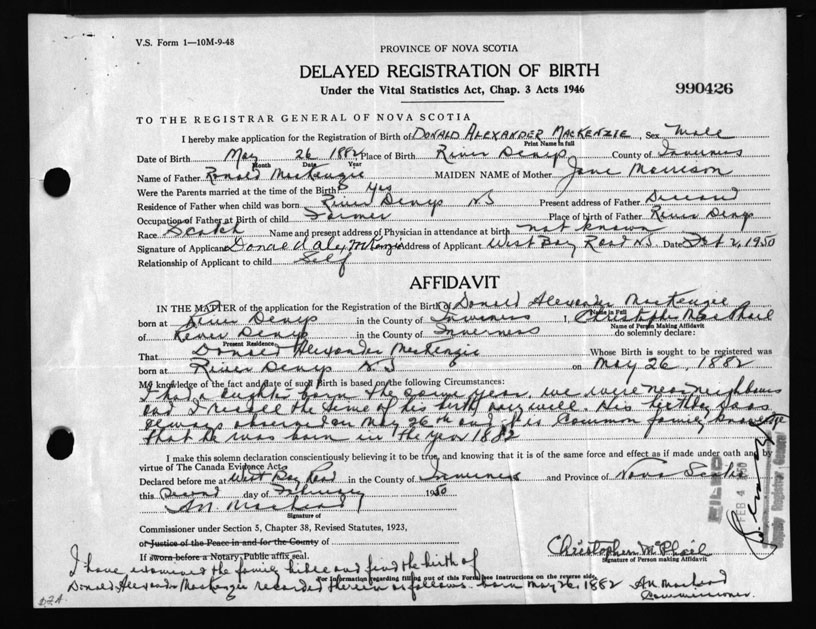 V.S. Form 1—10M-9-48
PROVINCE OF NOVA SCOTIA
DELAYED REGISTRATION OF BIRTH
Under the Vital Statistics Act, Chap. 3 Acts 1946
990426
TO THE REGISTRAR GENERAL OF NOVA SCOTIA
I hereby make application for the Registration of Birth of DONALD ALEXANDER MACKENZIE, Sex Male
Print Name in full
Date of Birth May 26 1882 Place of Birth River Denys County of Inverness
Month Date Year
Name of Father Ronald MacKenzie MAIDEN NAME of Mother Jane Morrison
Were the Parents married at the time of the Birth? Yes
Residence of Father when child was born River Denys N S Present address of Father Deceased
Occupation of Father at Birth of child Farmer Place of birth of Father River Denys
Race Scotch Name and present address of Physician in attendance at birth not known
Signature of Applicant Donald Alex McKenzie Address of Applicant West Bay Road N.S. Date Feb 2, 1950
Relationship of Applicant to child Self
AFFIDAVIT
IN THE MATTER of the application for the Registration of the Birth of Donald Alexander MacKenzie
Name in Full
born at River Denys in the County of Inverness I, Christopher MacPhail
Name of Person Making Affidavit
of River Denys in the County of Inverness do solemnly declare:
Present Residence
That Donald Alexander MacKenzie Whose Birth is sought to be registered was
born at River Denys N.S on May 26, 1882
My knowledge of the fact and date of such Birth is based on the following Circumstances:
I had a born the same year. we were near neighbours
and I recall the time of his birth very well. His birthday was
always observed on May 26th and it is Common family knowledge
that he was born in the year 1882
I make this solemn declaration conscientiously believing it to be true, and knowing that it is of the same force and effect as if made under oath and by
virtue of The Canada Evidence Act.
Declared before me at West Bay Road in the County of Inverness and Province of Nova Scotia
this Second day of February 1950
Signature of
Commissioner under Section 5, Chapter 38, Revised Statutes, 1923,
or Justice of the Peace in and for the County of
If sworn before a Notary Public affix seal.
Christopher McPhail
Signature of Person making Affidavit
For Information regarding filling out of this Form see instructions on the reverse side.
I have examined the family bible and find the birth of
Donald Alexander MacKenzie recorded therein as follows. born May 26, 1882
Commissioner.
FILED
FEB 4 1950
Deputy Registrar General